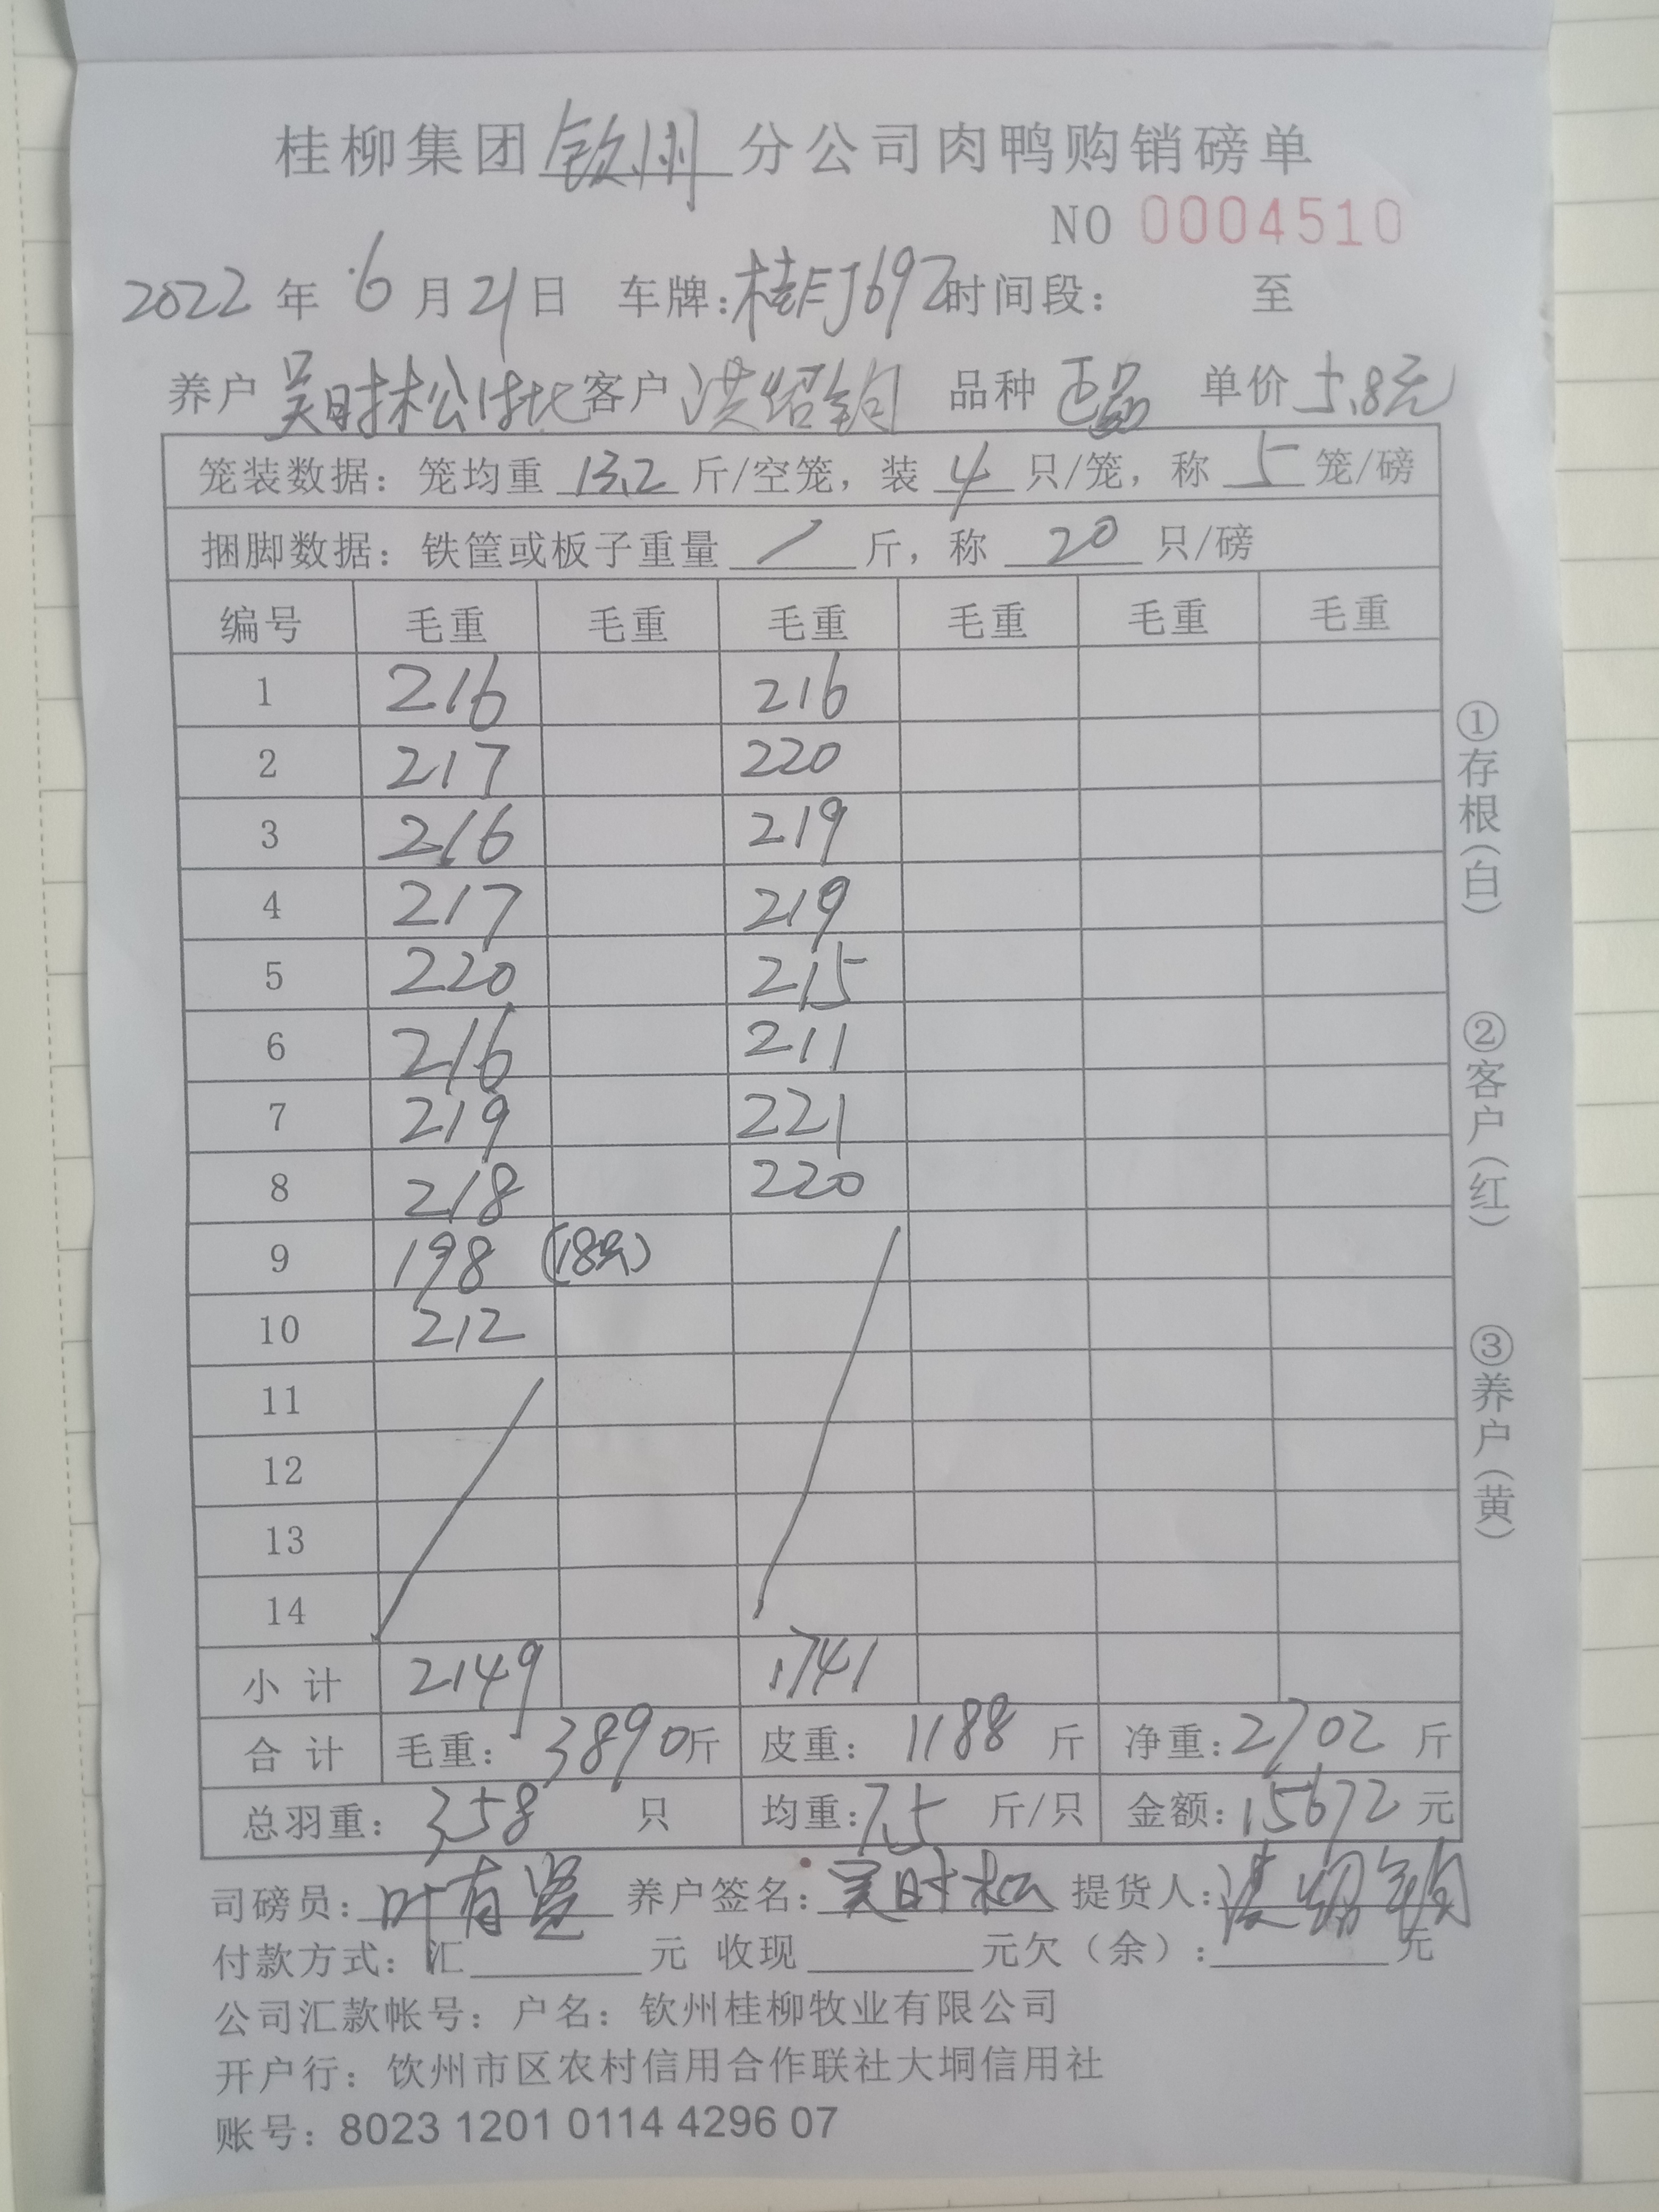 桂柳集团 钦州 分公司肉鸭购销磅单
NO 0004510
2022 年 6 月 21 日 车牌: 时间段: 至
养户 吴时松 客户 洪绍钧 品种 正品 单价 5.8元
笼装数据: 笼均重 13.2 斤/空笼, 装 4 只/笼, 称 5 笼/磅
捆脚数据: 铁筐或板子重量 / 斤, 称 20 只/磅
编号 毛重 毛重 毛重 毛重 毛重 毛重
1 216 216
2 217 220
3 216 219
4 217 219
5 220 215
6 216 211
7 219 221
8 218 220
9 198 (18只)
10 212
11
12
13
14
小计 2149 1741
合计 毛重: 3890斤 皮重: 1188 斤 净重: 2702 斤
总羽重: 358 只 均重: 7.5 斤/只 金额: 15672 元
司磅员: 叶有 养户签名: 吴时松 提货人: 洪绍钧
付款方式: 汇 元 收现 元欠（余）: 元
公司汇款帐号: 户名: 钦州桂柳牧业有限公司
开户行: 钦州市区农村信用合作联社大垌信用社
账号: 8023 1201 0114 4296 07
①存根(白) ②客户(红) ③养户(黄)